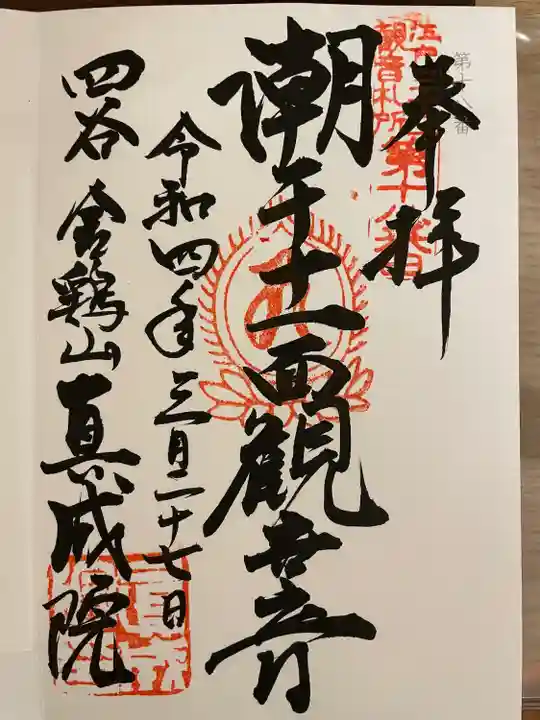 第十八番
江戸三十三
観音札所第十八番
奉拝
潮干十一面観世音
令和四年三月二十七日
四谷 金鶏山 真成院